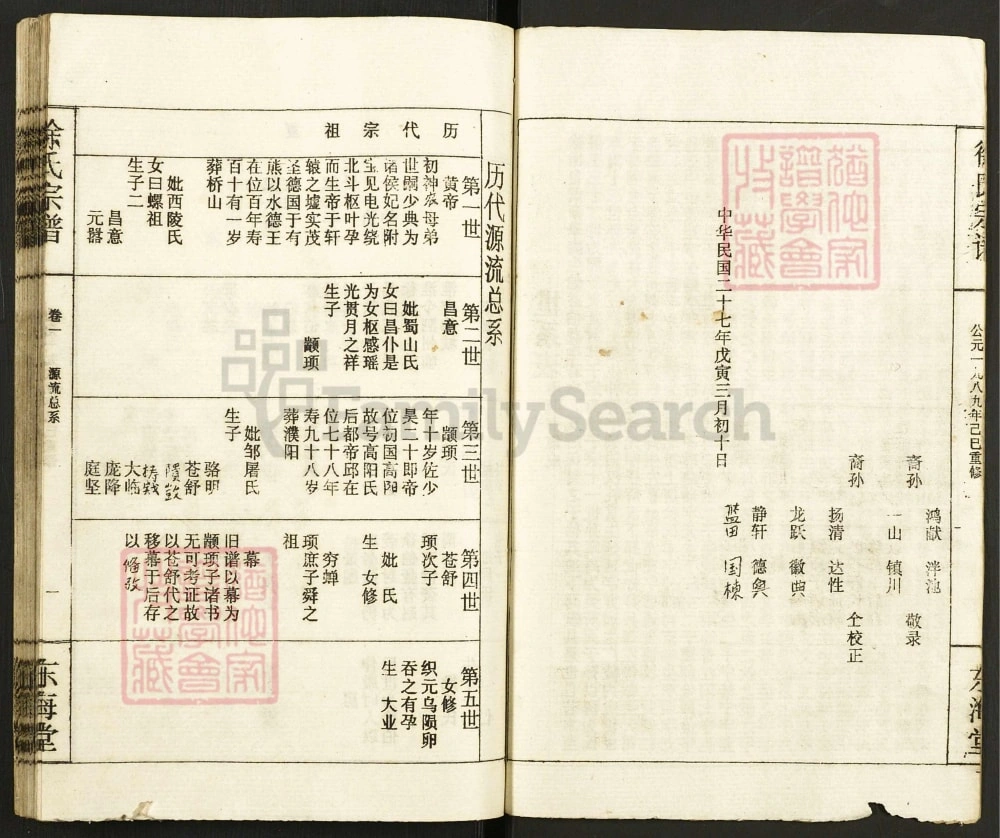 徐氏宗谱
公元一九八九年己巳重修
东海堂
鸿献 泮池
裔孙 一山 镇川 敬录
裔孙 扬清 达性 仝校正
龙跃 徽典
静轩 德舆
蓝田 国栋
中华民国二十七年戊寅三月初十日
历代源流总系
历代宗祖
第一世
黄帝
初神农母弟
世嗣少典为
诸侯妃名附
宝见电光绕
北斗枢叶孕
而生帝于轩
辕之墟实茂
圣德国于有
熊以水德王
在位百年寿
百十有一岁
葬桥山
妣西陵氏
女曰螺祖
生子二
昌意
元嚣
第二世
昌意
妣蜀山氏
女曰昌仆是
为女枢感瑶
光贯月之祥
生子
颛顼
第三世
颛顼
年十岁佐少
昊二十即帝
位初国高阳
故号高阳氏
后都帝邱在
位七十八年
寿九十八岁
葬濮阳
妣邹屠氏
生子
骆明
苍舒
隤敳
梼戭
大临
庞降
庭坚
第四世
苍舒
顼次子
妣 氏
生 女修
穷蝉
顼庶子舜之
祖
幕
旧谱以幕为
颛顼子诸书
无可考证故
以苍舒代之
移幕于后存
以俻攷
第五世
女修
织元鸟陨卵
吞之有孕
生 大业
徐氏宗谱
卷一 源流总系 一
东海堂
FamilySearch